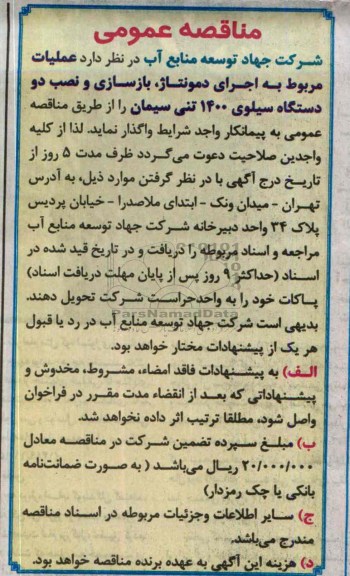 مناقصه عمومی
شرکت جهاد توسعه منابع آب در نظر دارد عملیات
مربوط به اجرای دمونتاژ، بازسازی و نصب دو
دستگاه سیلوی ۱۴۰۰ تنی سیمان را از طریق مناقصه
عمومی به پیمانکار واجد شرایط واگذار نماید. لذا از کلیه
واجدین صلاحیت دعوت می‌گردد ظرف مدت ۵ روز از
تاریخ درج آگهی با در نظر گرفتن موارد ذیل، به آدرس
تهران - میدان ونک - ابتدای ملاصدرا - خیابان پردیس
پلاک ۳۴ واحد دبیرخانه شرکت جهاد توسعه منابع آب
مراجعه و اسناد مربوطه را دریافت و در تاریخ قید شده در
اسناد (حداکثر ۹ روز پس از پایان مهلت دریافت اسناد)
پاکات خود را به واحدحراست شرکت تحویل دهند.
ParsNamadData
بدیهی است شرکت جهاد توسعه منابع آب در رد یا قبول
هر یک از پیشنهادات مختار خواهد بود.
الف) به پیشنهادات فاقد امضاء، مشروط، مخدوش و
پیشنهاداتی که بعد از انقضاء مدت مقرر در فراخوان
واصل شود، مطلقا ترتیب اثر داده نخواهد شد.
ب) مبلغ سپرده تضمین شرکت در مناقصه معادل
۲۰/۰۰۰/۰۰۰ ریال می‌باشد ( به صورت ضمانت‌نامه
بانکی یا چک رمزدار)
ج) سایر اطلاعات وجزئیات مربوطه در اسناد مناقصه
مندرج می‌باشد.
د) هزینه این آگهی به عهده برنده مناقصه خواهد بود.